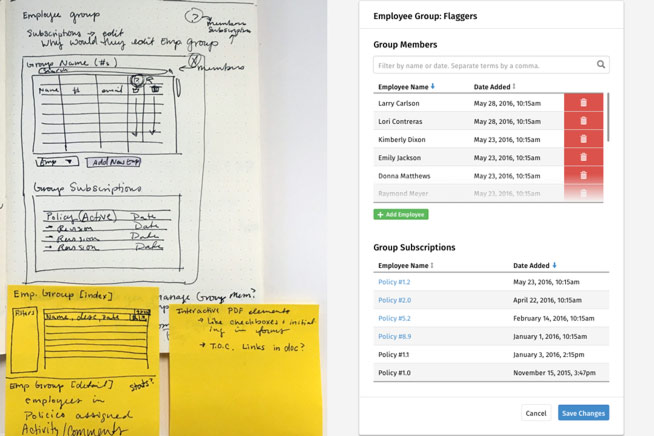 Employee group
?
members
Subscriptions → edit
Subscription
Why would they edit Emp Group
Group Name (#s)
members
Search
Name # email
Emp ▼ Add New Emp
Group Subscriptions
Policy (Active) Date
→ Revision Date
→ Revision Date
→ Revision Date
Emp. Group [index]
Filters
Name, desc, date
Emp Group [detail] stats?
employees in
Policies assigned
Activity/Comments
manage Group Mem?
Interactive PDF elements
→ Like checkboxes + initial
ing in forms
→ T.O.C. Links in doc?
Employee Group: Flaggers
Group Members
Filter by name or date. Separate terms by a comma.
Employee Name Date Added
Larry Carlson May 28, 2016, 10:15am
Lori Contreras May 28, 2016, 10:15am
Kimberly Dixon May 23, 2016, 10:15am
Emily Jackson May 23, 2016, 10:15am
Donna Matthews May 23, 2016, 10:15am
Raymond Meyer May 23, 2016, 10:15am
+ Add Employee
Group Subscriptions
Employee Name Date Added
Policy #1.2 May 23, 2016, 10:15am
Policy #2.0 April 22, 2016, 10:15am
Policy #5.2 February 14, 2016, 10:15am
Policy #8.9 January 1, 2016, 10:15am
Policy #1.1 January 3, 2016, 2:15pm
Policy #1.0 November 15, 2015, 3:47pm
Cancel Save Changes